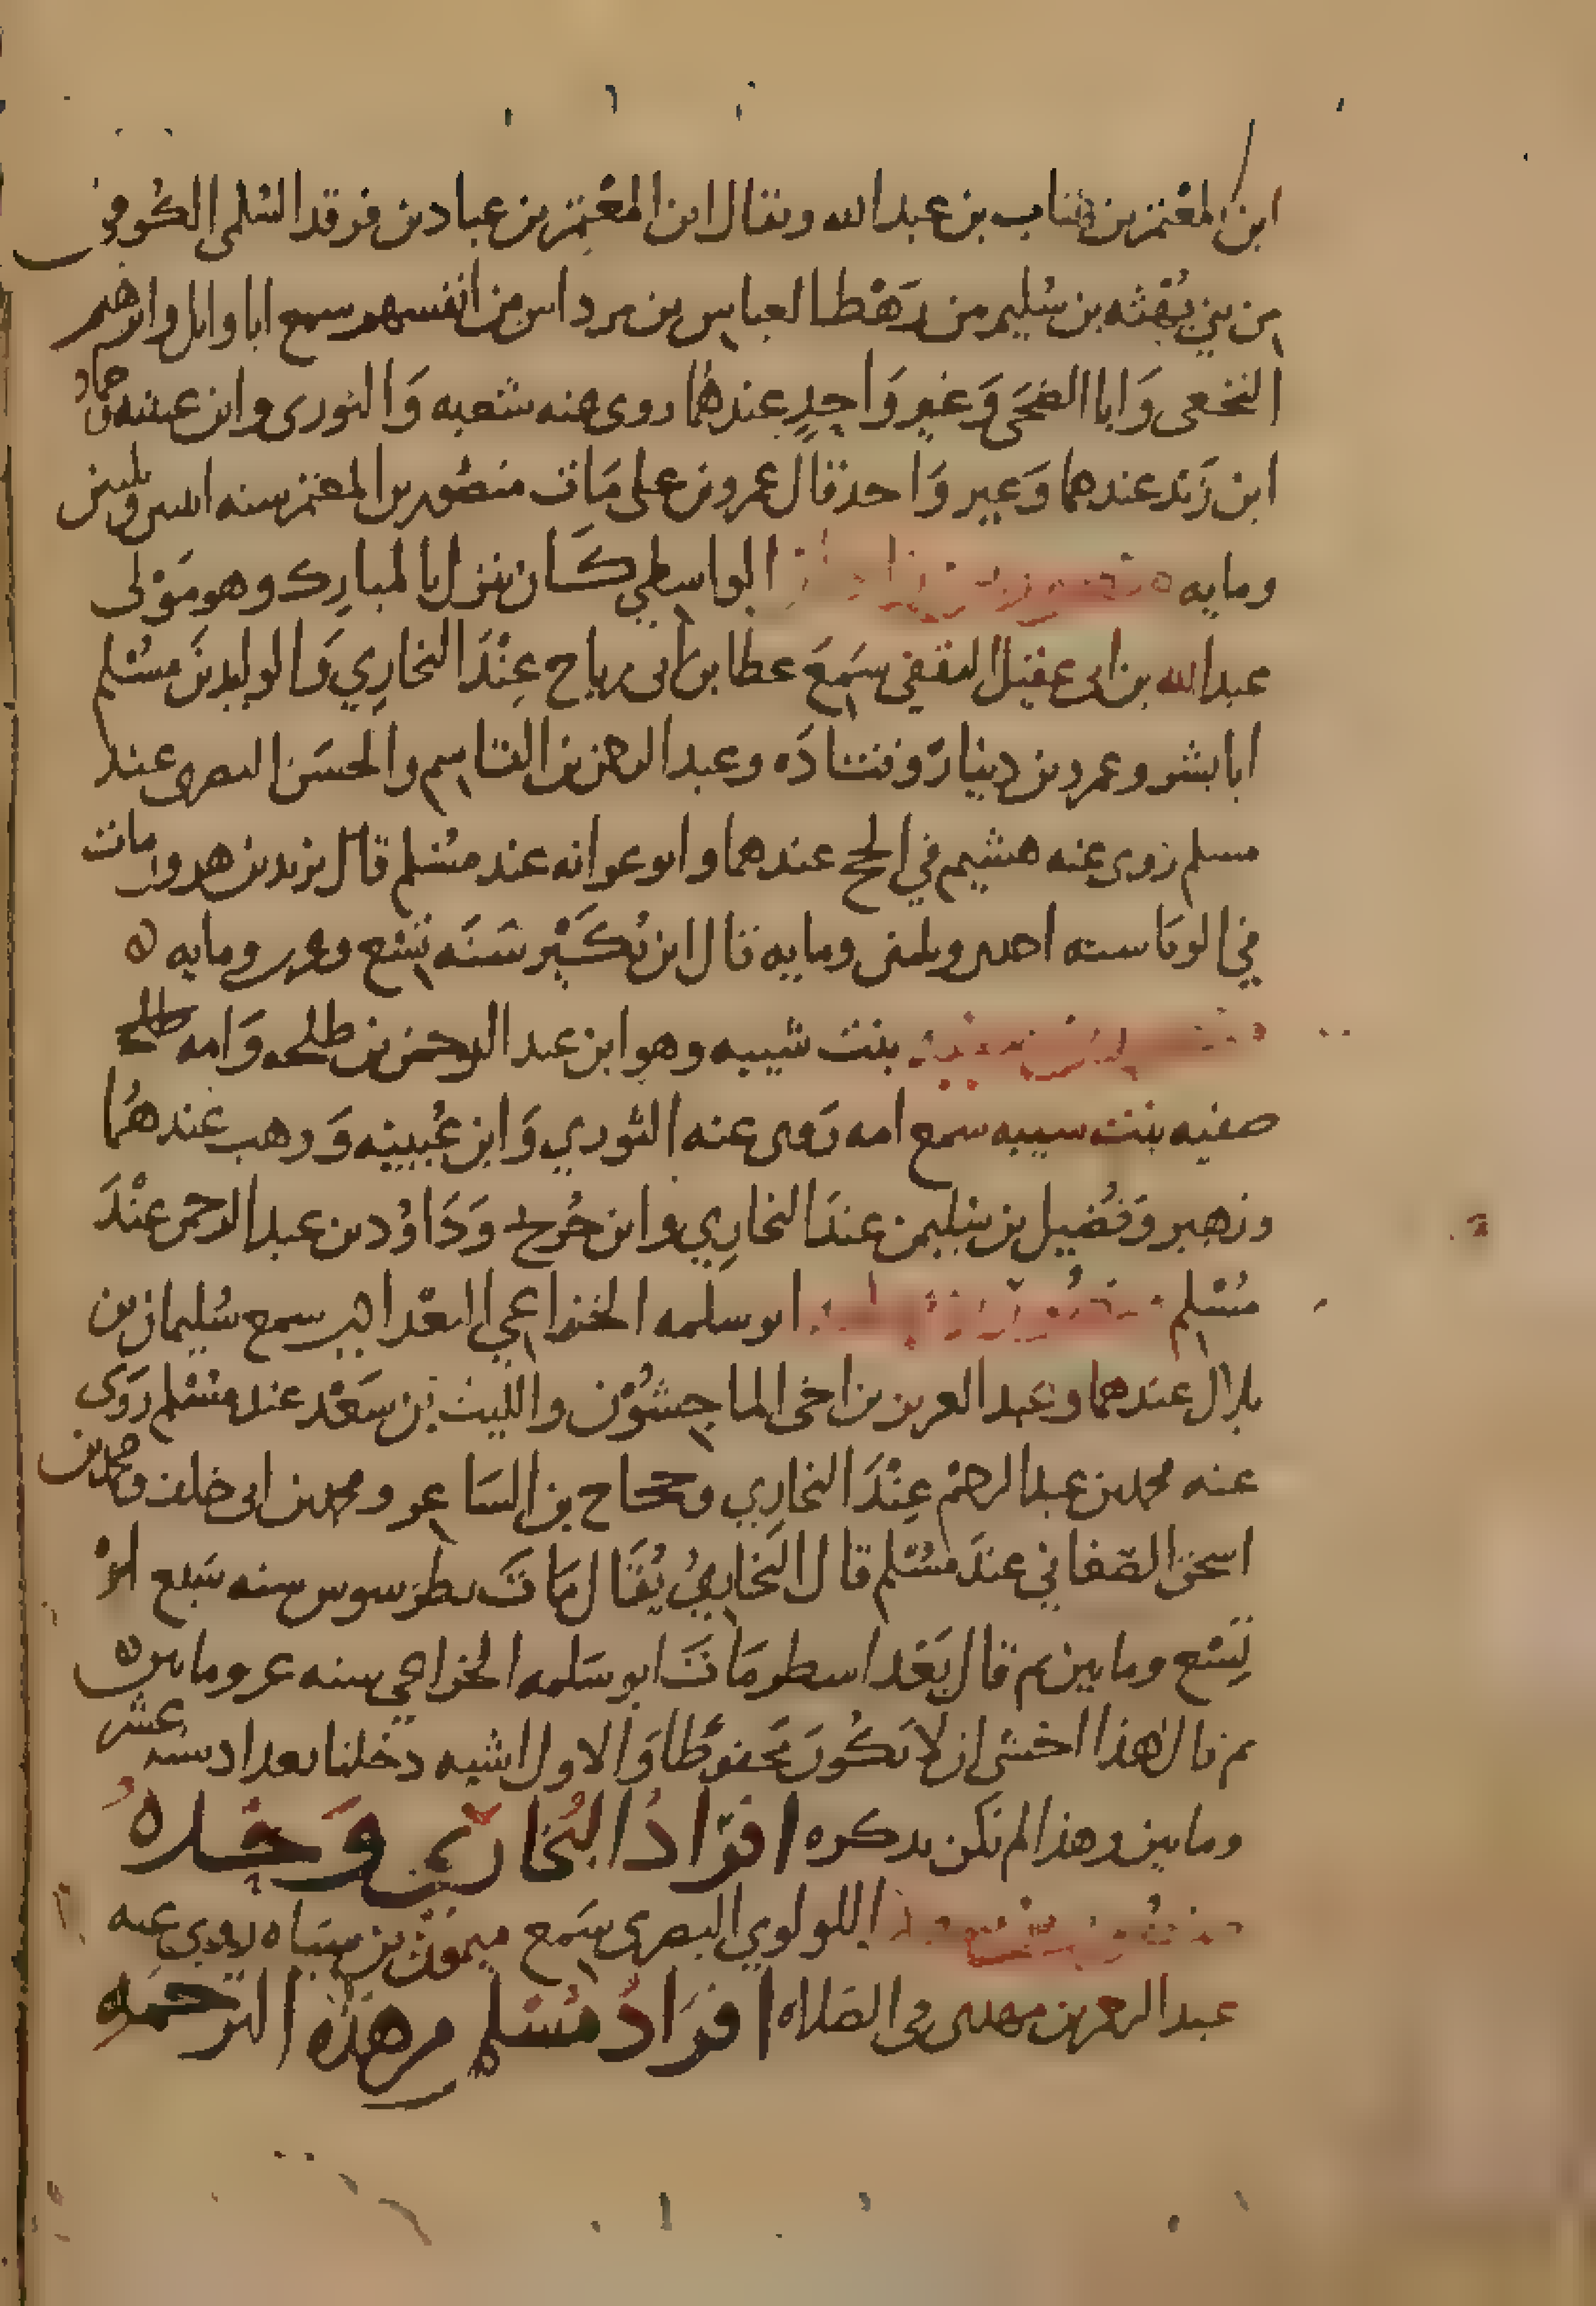 ابن المعتمز بن عتاب بن عبد الله ويقال ابن المعتمر بن عباد بن فرقد السُلمى الكوفي
من بني بُهثه بن سُليم من رَهْط العباس بن مرداس من انفسهم سمع ابا وايل وابرهيم
النخعى وَابا الضحَى وَغير وَاحِدٍ عندهُما روى عنه شعبه وَالثورى وابن عيينه وحماد
ابن زَيد عندهما وَغير وَاحد قال عمرو بن على مَات منصُور بن المعتمر سنه اثنين وثلثين
ومايه الواسطي كَان ينزل بالمبارك وهو مَوْلى
عبد الله بن ابى عقيل الثقفي سَمِعَ عطا بن ابى رباح عِنْدَ البخارِي وَالوليد بنَ مسْلم
ابا بشر وعمرو بن دينار وقتادَه وعبد الرحمن بن القاسِم والحسَن البصرى عند
مسلم روى عنه هشيم في الحج عندهما وابو عوانه عند مسْلم قال يزيد بن هرون مات
في الوبا سنه احدى وثلثين ومايه قال ابن بُكَيْر سَنَه تسع وعشرين ومايه
بنت شيبه وهو ابن عبد الرحمن بن طلحه وَامه
صفيه بنت شيبه سمع امه رَوى عنه الثوري وَابن عُيينه وَوهب عندهُما
وزهير وَفُضيل بن سُليمن عندَ البخارِي وابن جُريج وَدَاوُد بن عبد الرحمن عنْدَ
مُسْلم ابو سلمه الخزاعي البغدادي سمع سُليمان بن
بلال عندهما وعبد العزيز بن اخى الماجِشُوْن والليث بن سَعْد عند مسْلم رَوَى
عنه محمد بن عبد الرحيم عِنْدَ البخارِي وحجاج بن الشاعر ومحمد بن ابى خلف ومحمد بن
اسحق الصّغاني عندَ مسْلم قال البخارِيُ يُقَال مَاتَ بطرسوس سنه سَبع اوْ
تِسْع ومايتين ثم قال بَعْد اسطر مَاتَ ابو سَلمه الخزاعي سنه عشر ومايتين
ثم قال هذا اخشى ان لا يَكُونَ محفوظًا وَالاول اشبه دخلنا بغداد سنه عشر
ومايتين وهذا لم نكن نذكره افرَادُ البُخارِي وَحْدهُ
اللولوي البصرى سَمع ميمُون بن سِيَاه روى عنه
عبد الرحمن بن مهدى فى الصَلاه افرَادُ مُسْلم من هذه الترجمه